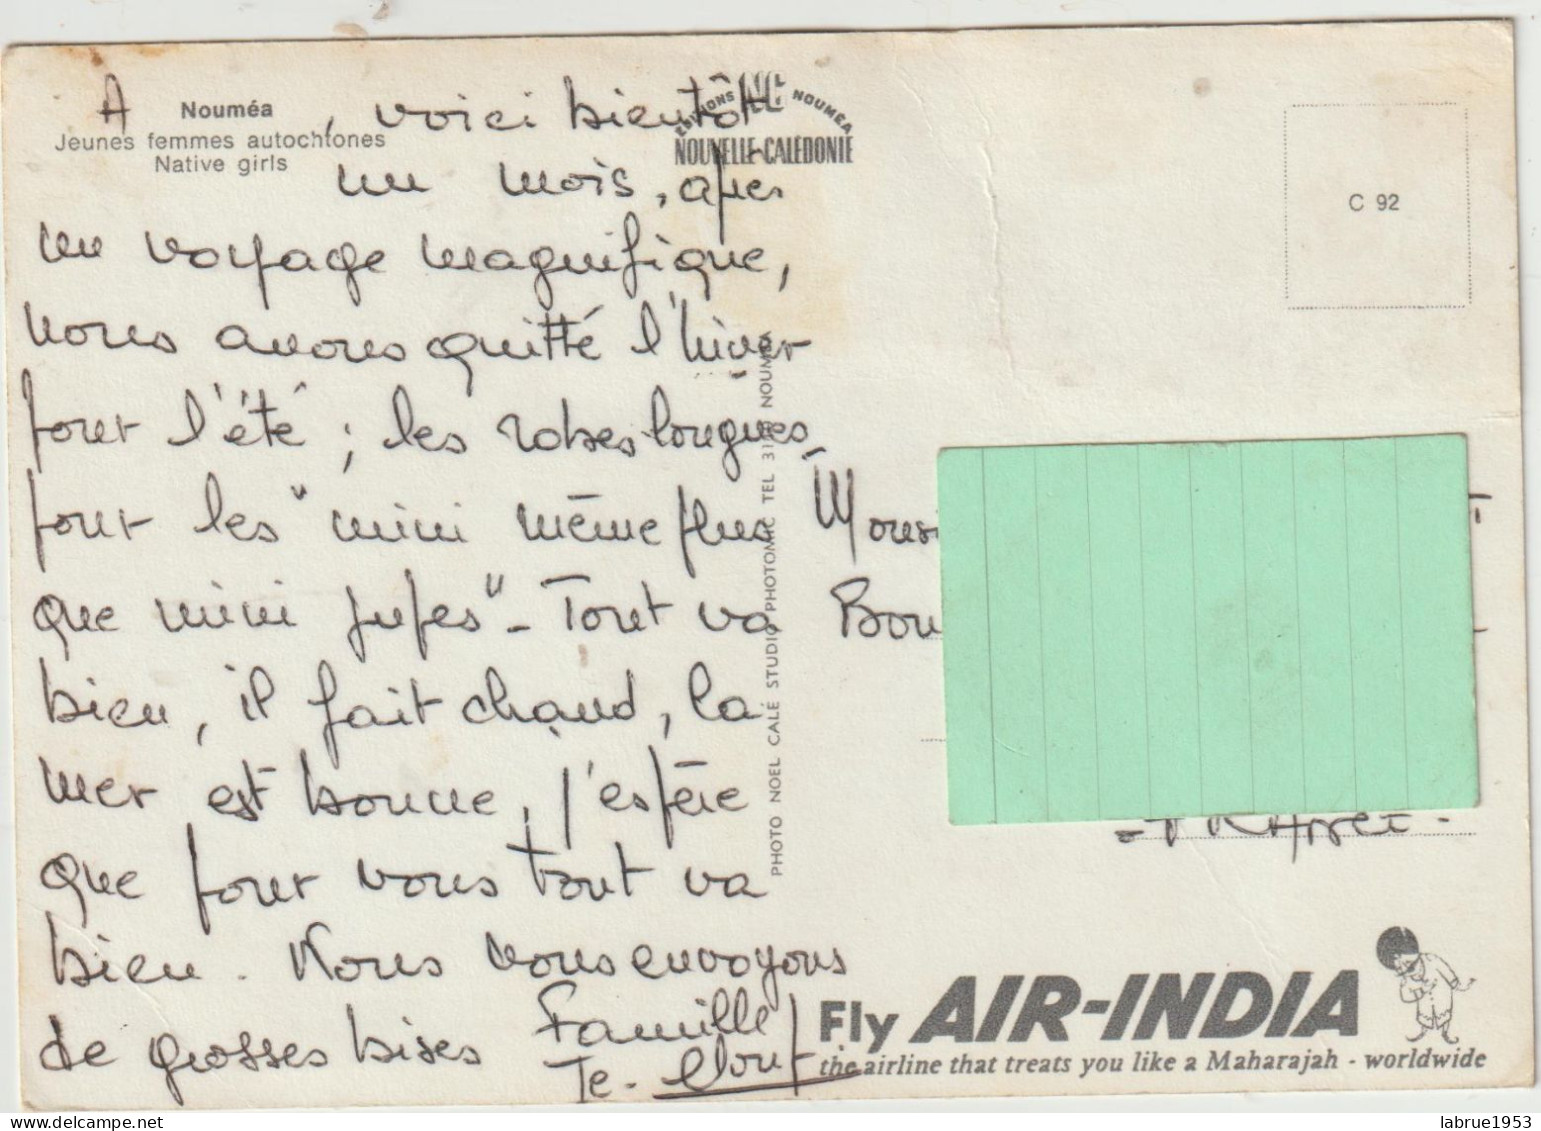 Nouméa
Jeunes femmes autochtones
Native girls
EDITIONS NOUMÉA
NOUVELLE-CALEDONIE
C 92
A , voici bientôt
un mois, après
un voyage magnifique,
nous avons quitté l'hiver
pour l'été ; les robes longues,
pour les "mini même plus
que mini jupes" - Tout va
bien, il fait chaud, la
mer est bonne, j'espère
que pour vous tout va
bien. Nous vous envoyons
de grosses bises Famille
PHOTO NOEL CALÉ STUDIO PHOTOMIC TEL NOUMÉA
Fly AIR-INDIA
the airline that treats you like a Maharajah - worldwide
labrue1953